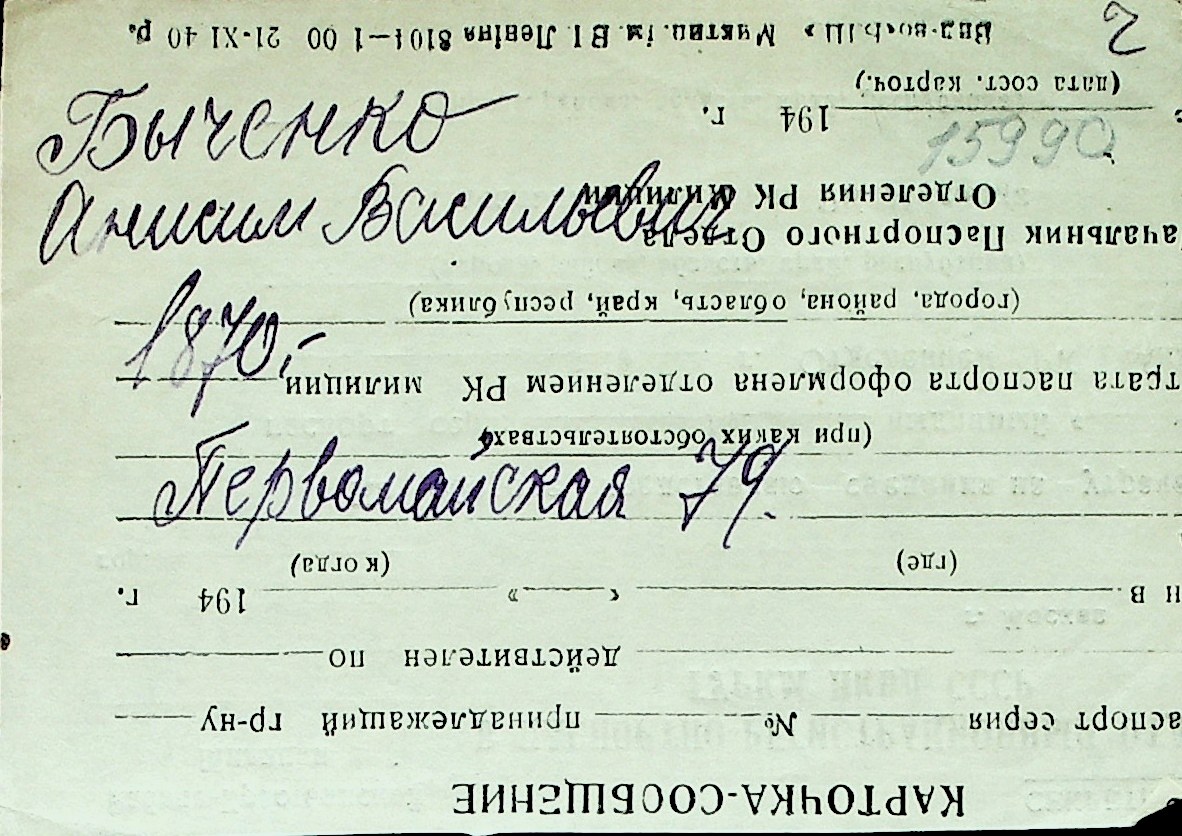 Быченко
Анисим Васильевич
1870,-
Первомайская 79.
15990
2
КАРТОЧКА-СООБЩЕНИЕ
аспорт серия № принадлежащий гр-ну
действителен по
н в « » 194 г.
(где) (когда)
(при каких обстоятельствах)
трата паспорта оформлена отделением РК милиции
(города, района, область, край, республика)
ачальник Паспортного Отдела
Отделения РК Милиции
194 г.
(дата сост. карточ.)
Вид-во „Б Ш“ Муктац. ім. В І Леніна 8104—1 00 21-XI 40 р.